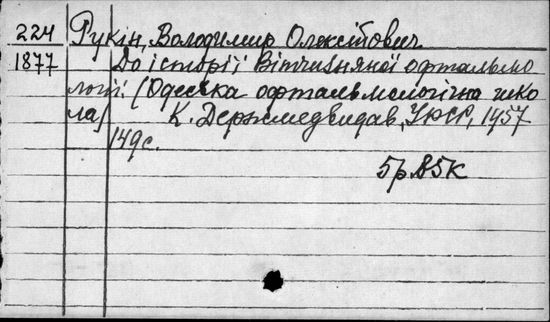 224 Рукін, Володимир Олексійович
1877 До історії вітчизняної офтальмо
логії. (Одеська офтальмологічна шко
ла) К. Держмедвидав, УРСР, 1957
149с.
5р.85к